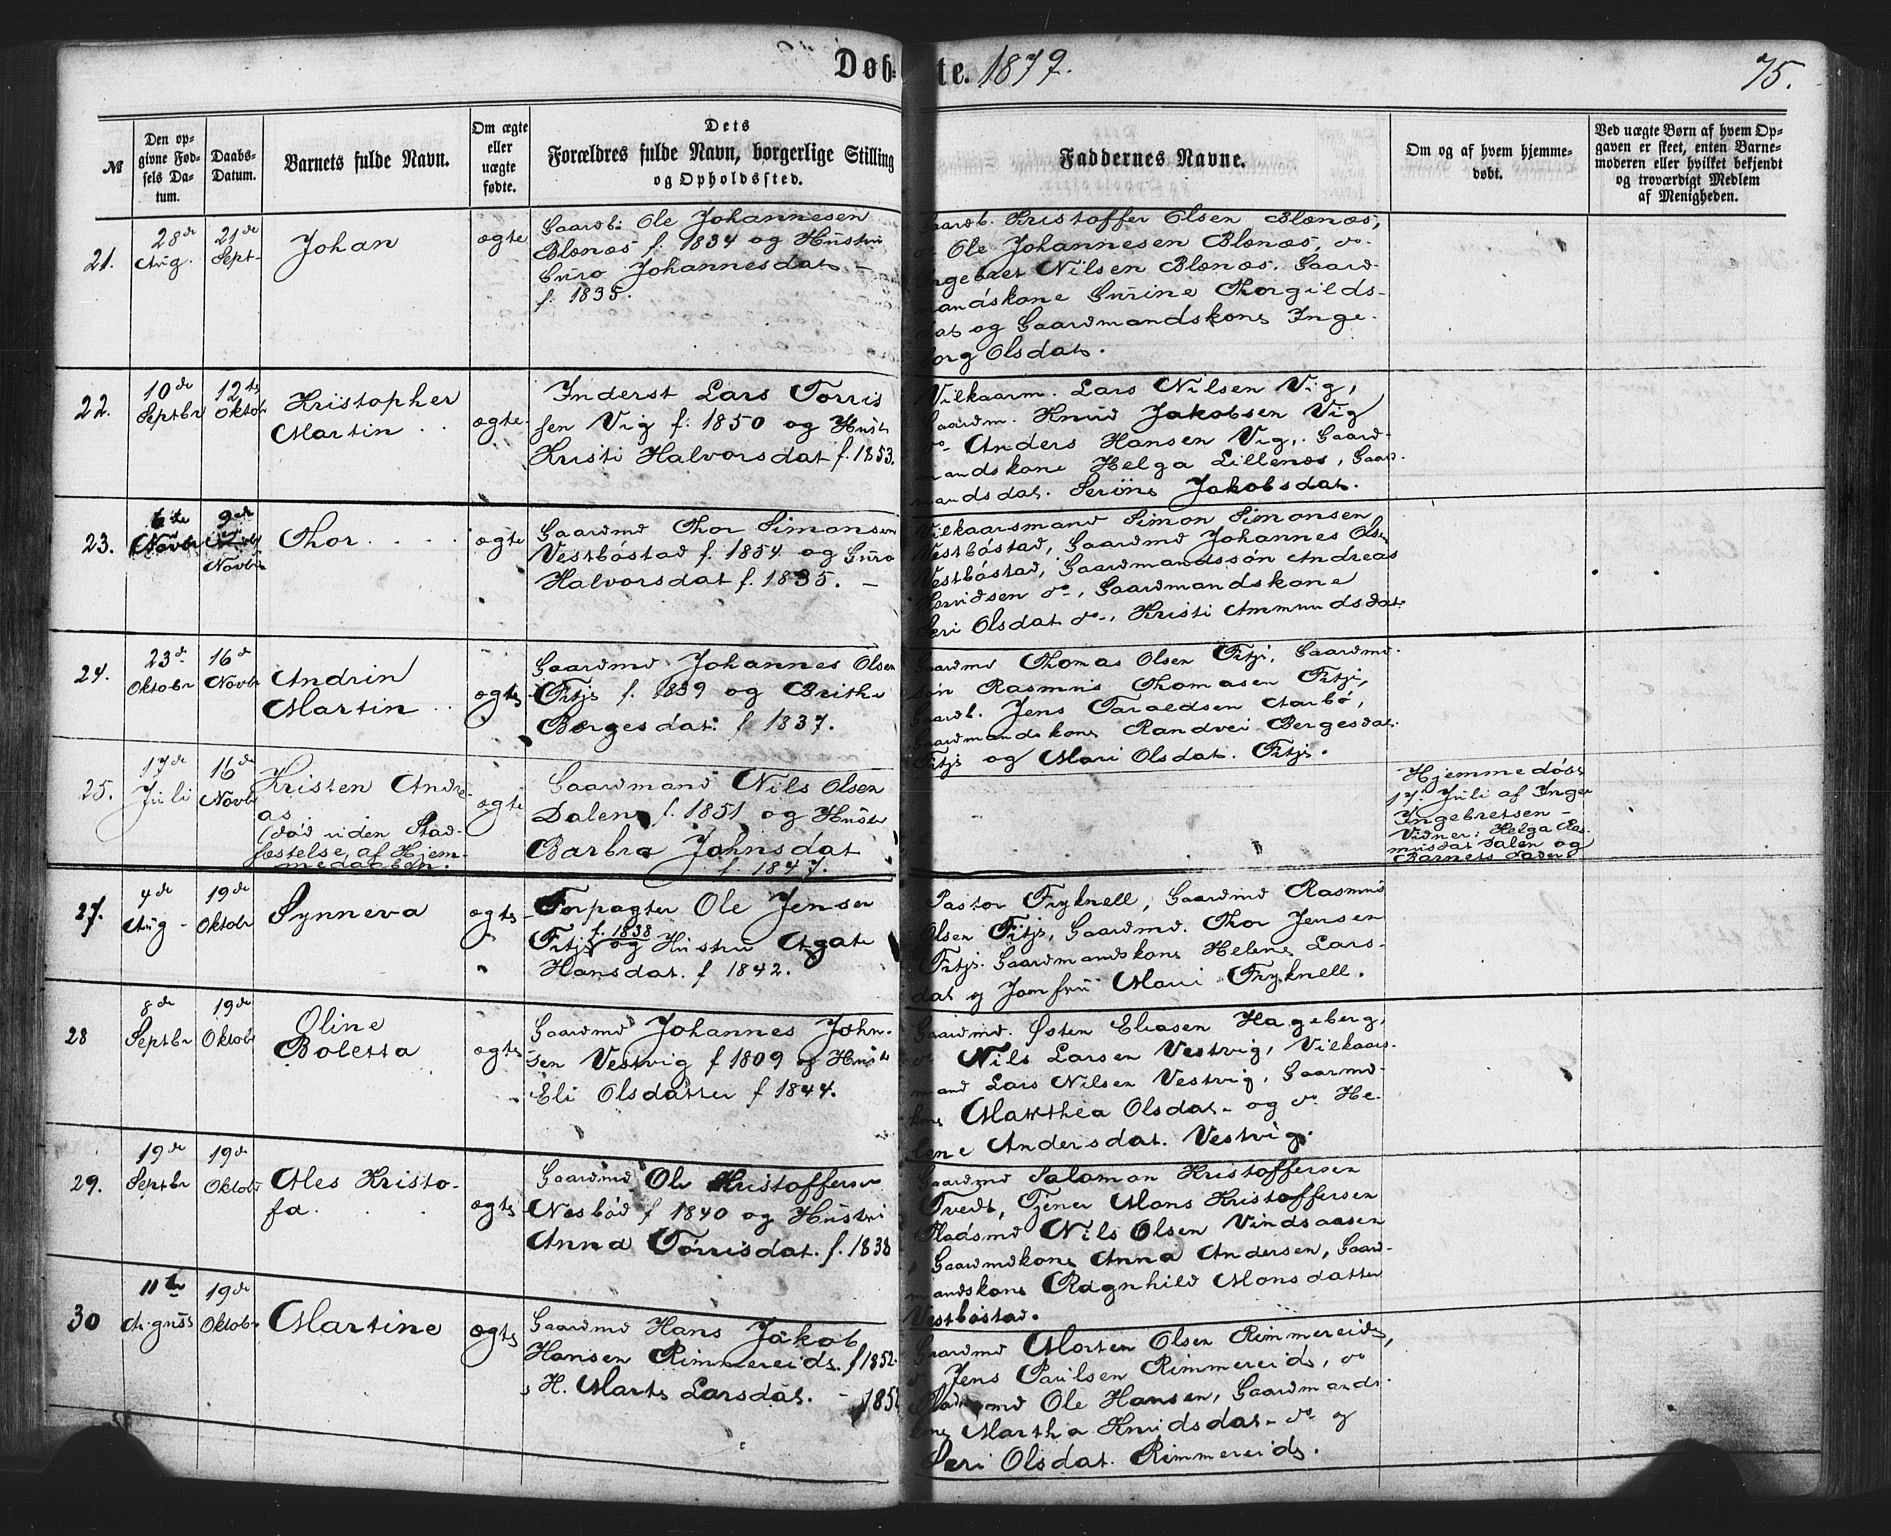 Døb: te. 1879. 75.
№
Den op-
givne Fød-
sels Da-
tum.
Daabs-
Datum.
Barnets fulde Navn.
Om ægte
eller
uægte
fødte.
Dets
Forældres fulde Navn, borgerlige Stilling
og Opholdssted.
Faddernes Navne.
Om og af hvem hjemme-
døbt.
Ved uægte Børn af hvem Op-
gaven er skeet, enten Barne-
moderen eller hvilket bekjendt
og troværdigt Medlem
af Menigheden.
21.
28de
Aug.
21de
Sept-
Johan
ægte
Gaardb: Ole Johannesen
Blænæs f. 1834 og Hustru
Guro Johannesdat -
f. 1835.
aardb. Kristoffer Olsen Blænæs,
Ole Johannesen Blænæs, do.
ngebret Nilsen Blænæs. Gaard-
mandskone Gurine Thorgilds-
dat og Gaardmandskone Inge-
borg Olsdat.
22.
10de
Septbr
12te
Oktobr
Kristopher
Martin
ægte
Inderst Lars Torris
sen Vig f: 1850 og Hust
Kristi Halvorsdat f. 1853.
Vilkaarm. Lars Nilsen Vig,
Gaardm. Knud Jakobsen Vig
do Anders Hansen Vig, Gaard-
mandskone Helga Lillenæs, Gaard
mandsdat. Serine Jakobsdat.
23.
6te
Novbr
9de
Novbr
Thor
ægte
Gaardmd Thor Simonsen
Vestbøstad f. 1854 og Guro
Halvorsdat f. 1835. -
Vilkaarsmand Simon Simonsen
Vestbøstad, Gaardmd Johannes Olsen
Vestbøstad, Gaardmandssøn Andreas
do, Gaardmandskone
Seri Olsdat do, Kristi Ammundsdat
24.
23de
Oktobr
16de
Novbr
Andrin
Martin
ægte
Gaardmd Johannes Olsen
Fitje f. 1839 og Brithe
Børgesdat: f 1837.
Gaardmd Thomas Olsen Fitje, Gaardmd-
søn Rasmus Thomasen Fitje,
Gaardb. Jens Taraldsen Aarbø,
Gaardmandskone Randvei Børgesdat
Fitje og Mari Olsdat. Fitje.
25.
17de
Juli
16de
Novbr
Kristen Andre-
as
(død uden Stad-
fæstelse af Hjem-
medaaben.
ægte
Gaardmand Nils Olsen
Dalen f. 1851 og Hustr
Barbra Johnsdat
f. 1847.
Hjemmedøbt
17. Juli af Inger
Ingebretsen -
Vidner: Helga Ras-
musdat Dalen og
Barnets Fader
27.
4de
Aug -
19de
Oktobr
Synneva
ægte
Forpagter Ole Jensen
Fitje f. 1838 og Hustru Agate
Hansdat. f 1842.
Pastor Fryknell, Gaardmd Rasmus
Olsen Fitje, Gaardmd. Thor Jensen
Fitje. Gaardmandskone Helene Lars-
dat og Jomfru Mari Fryknell.
28
8de
Septbr
19de
Oktobr
Oline
Boletta
ægte
Gaardmd Johannes John-
sen Vestvig f 1809 og Hust
Eli Olsdatter f 1844.
Gaardmd. Østen Eliasen Hageberg,
do Nils Larsen Vestvig, Vilkaars-
mand Lars Nilsen Vestvig, Gaardmd-
kone Marthea Olsdat - og do He-
lene Andersdat. Vestvig.
29.
19de
Septbr
19de
Oktobr
Ales Kristo-
fa.
ægte
Gaardmd Ole Kristoffersen
Næsbød f 1840 og Hustru
Anna Torrisdat. f. 1838
Gaardmd Salamon Kristoffersen
Tvedt, Tjener Mons Kristoffersen
Pladsmd Nils Olsen Vindsaasen
Gaardmdkone Anna Andersen, Gaard-
mandskone Ragnhild Monsdatter
Vestbøstad.
30
11te
August
19de
Oktobr
Martine
ægte
Gaardmd Hans Jakob
Hansen Rimmereide f 1852.
H. Marte Larsdat. -
Gaardmd Morten Olsen Rimmereide,
do Jens Paulsen Rimmereide, do
Pladsmd Ole Hansen, Gaardmands-
kone Martha Knudsdat - do og
Seri Olsdat Rimmereide.